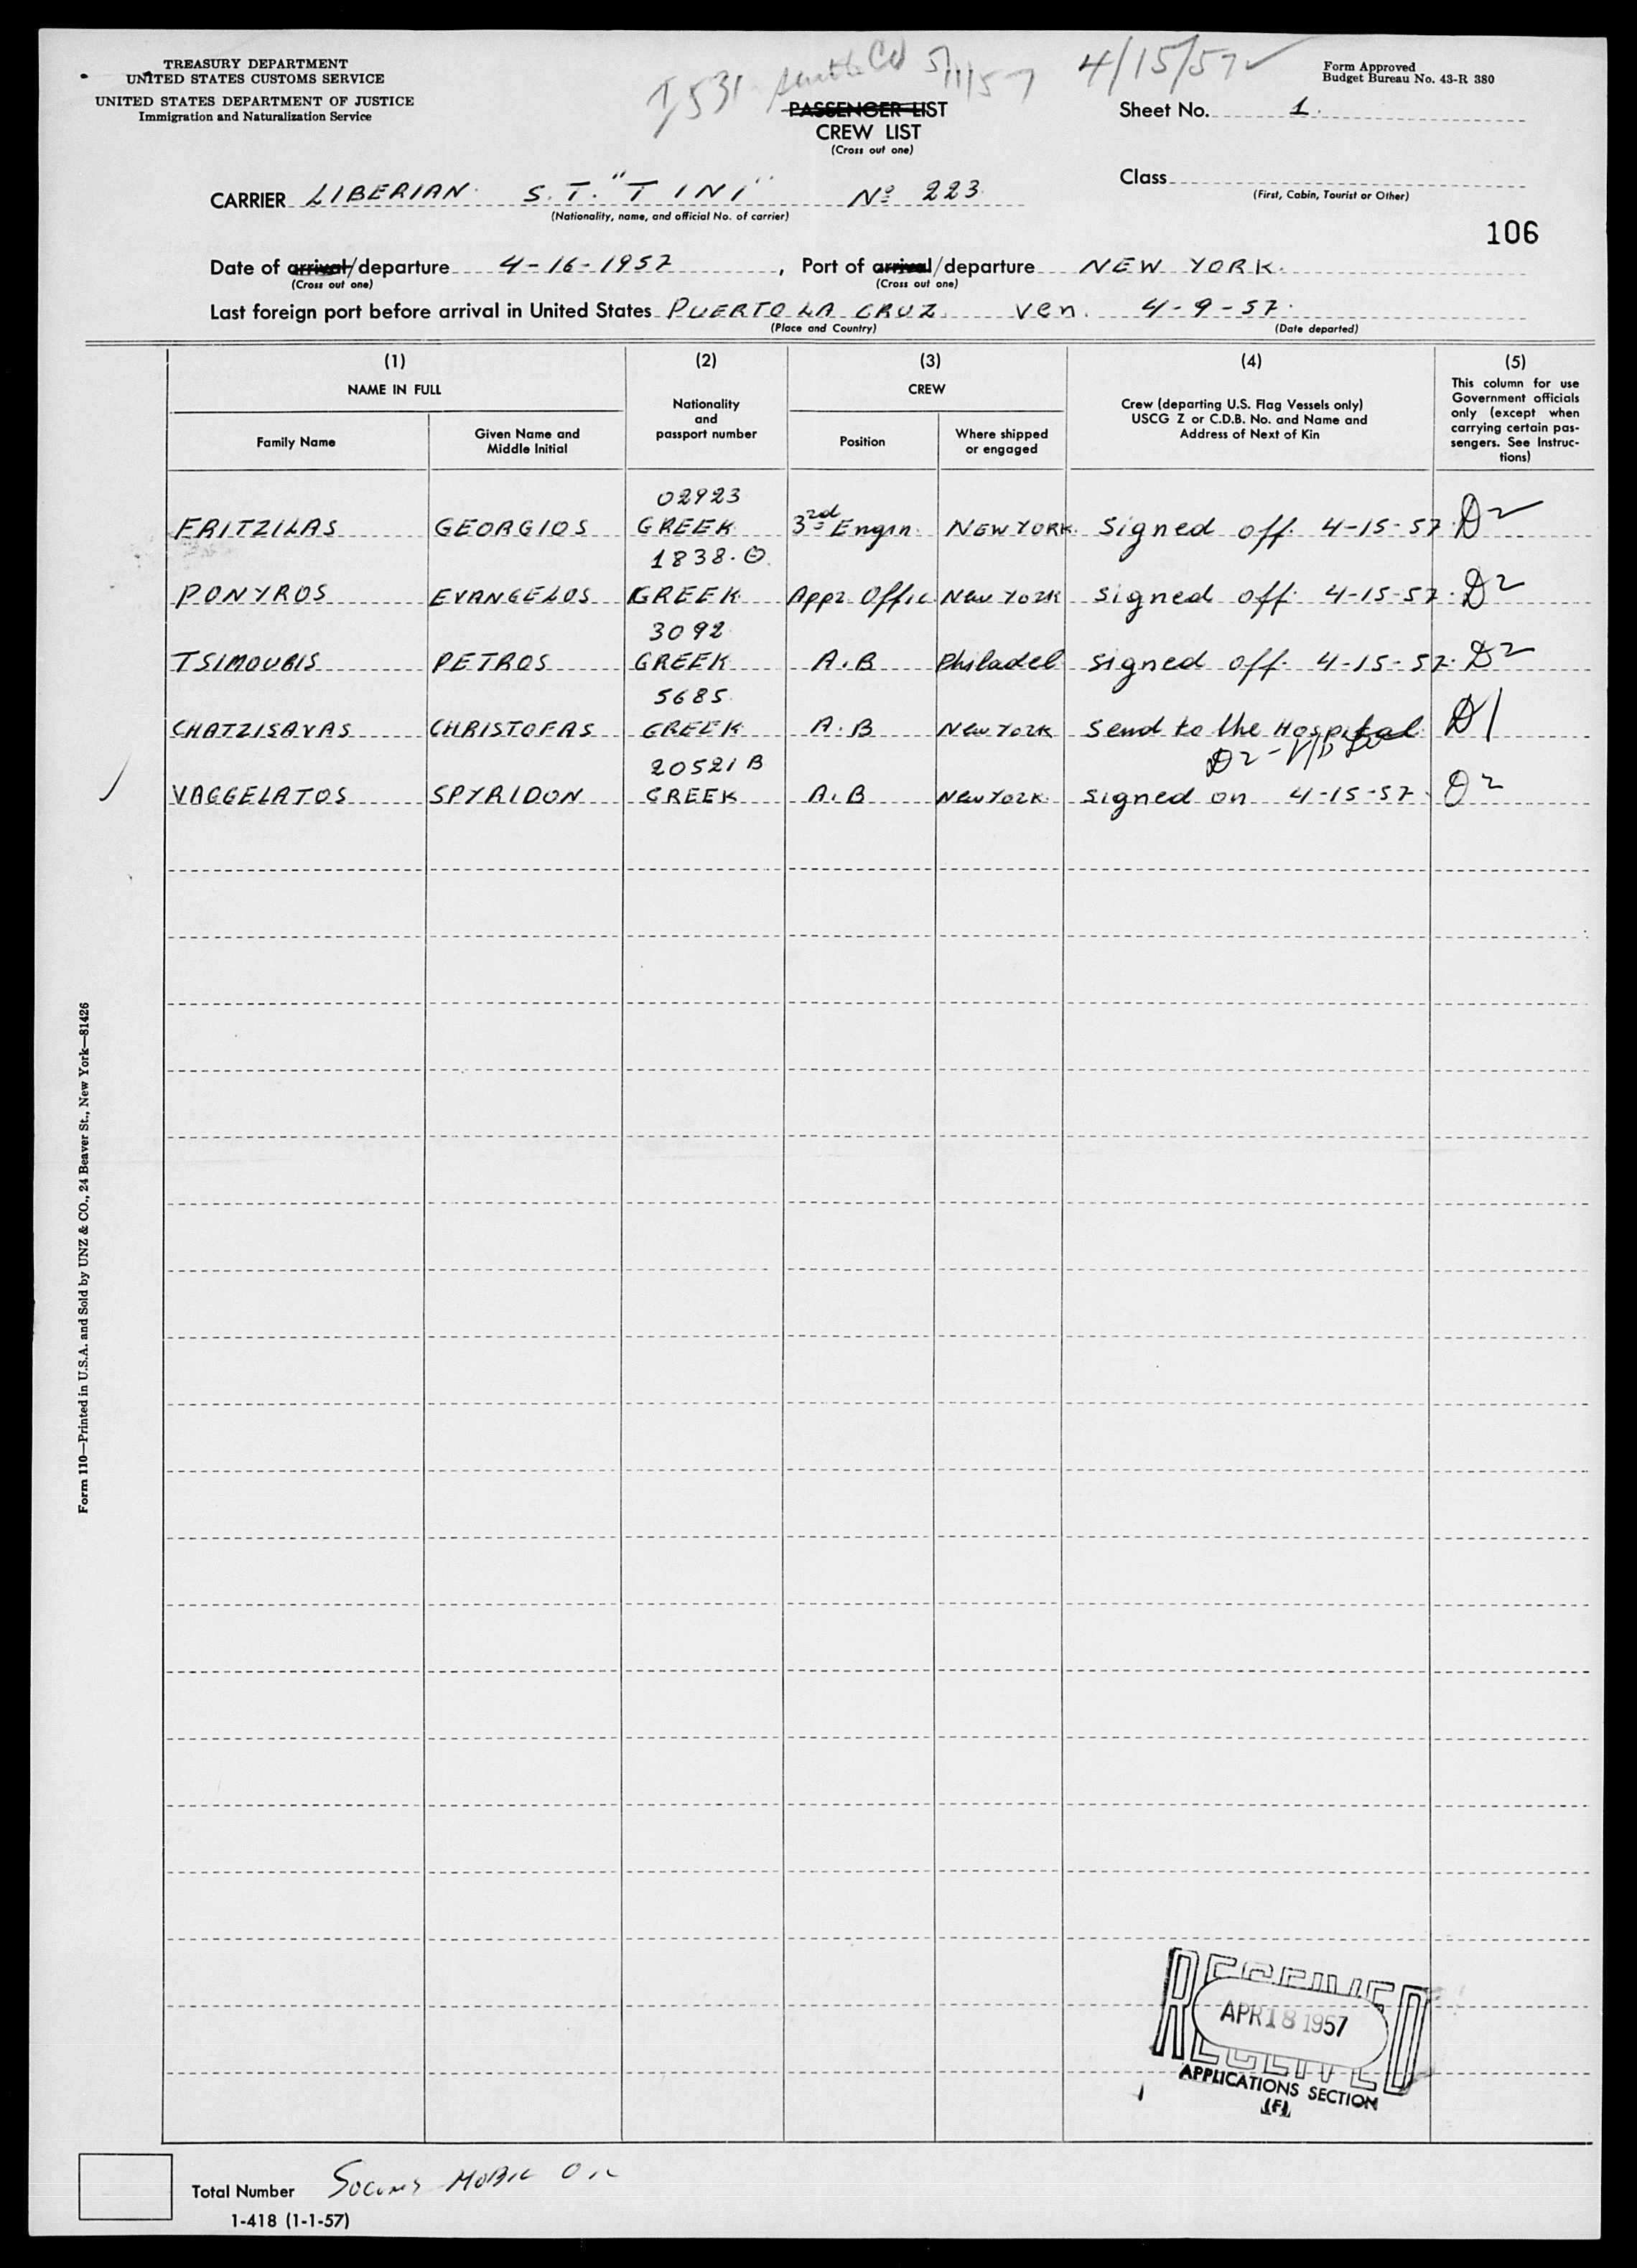 TREASURY DEPARTMENT
UNITED STATES CUSTOMS SERVICE
UNITED STATES DEPARTMENT OF JUSTICE
Immigration and Naturalization Service
4/15/57
Form Approved
Budget Bureau No. 43-R 380
PASSENGER LIST
CREW LIST
(Cross out one)
Sheet No. 1.
Class
(First, Cabin, Tourist or Other)
CARRIER LIBERIAN S. T. "TINI" Nº 223
(Nationality, name, and official No. of carrier)
106
Date of arrival/departure 4-16-1957, Port of arrival/departure NEW YORK.
(Cross out one) (Cross out one)
Last foreign port before arrival in United States PUERTO LA CRUZ ven. 4-9-57.
(Place and Country) (Date departed)
(1) (2) (3) (4) (5)
NAME IN FULL
Family Name
Given Name and
Middle Initial
Nationality
and
passport number
CREW
Position
Where shipped
or engaged
Crew (departing U.S. Flag Vessels only)
USCG Z or C.D.B. No. and Name and
Address of Next of Kin
This column for use
Government officials
only (except when
carrying certain pas-
sengers. See Instruc-
tions)
02923
FRITZILAS GEORGIOS GREEK 3rd Engin. NEW YORK signed off. 4-15-57. D2
1838.Θ.
PONYROS EVANGELOS GREEK Appr. Offic New York signed off. 4-15-57. D2
3092
TSIMOUBIS PETROS GREEK A.B Philadel signed off. 4-15-57. D2
5685
CHATZISAVAS CHRISTOFAS GREEK A.B New York Send to the Hospital D1
D2 -
20521 B
VAGGELATOS SPYRIDON GREEK A.B New York signed on 4-15-57 D2
Form 110—Printed in U.S.A. and Sold by UNZ & CO., 24 Beaver St., New York—81426
RECEIVED
APR 18 1957
RECEIVED
APPLICATIONS SECTION
(F)
Total Number Socony Mobil Oil
1-418 (1-1-57)